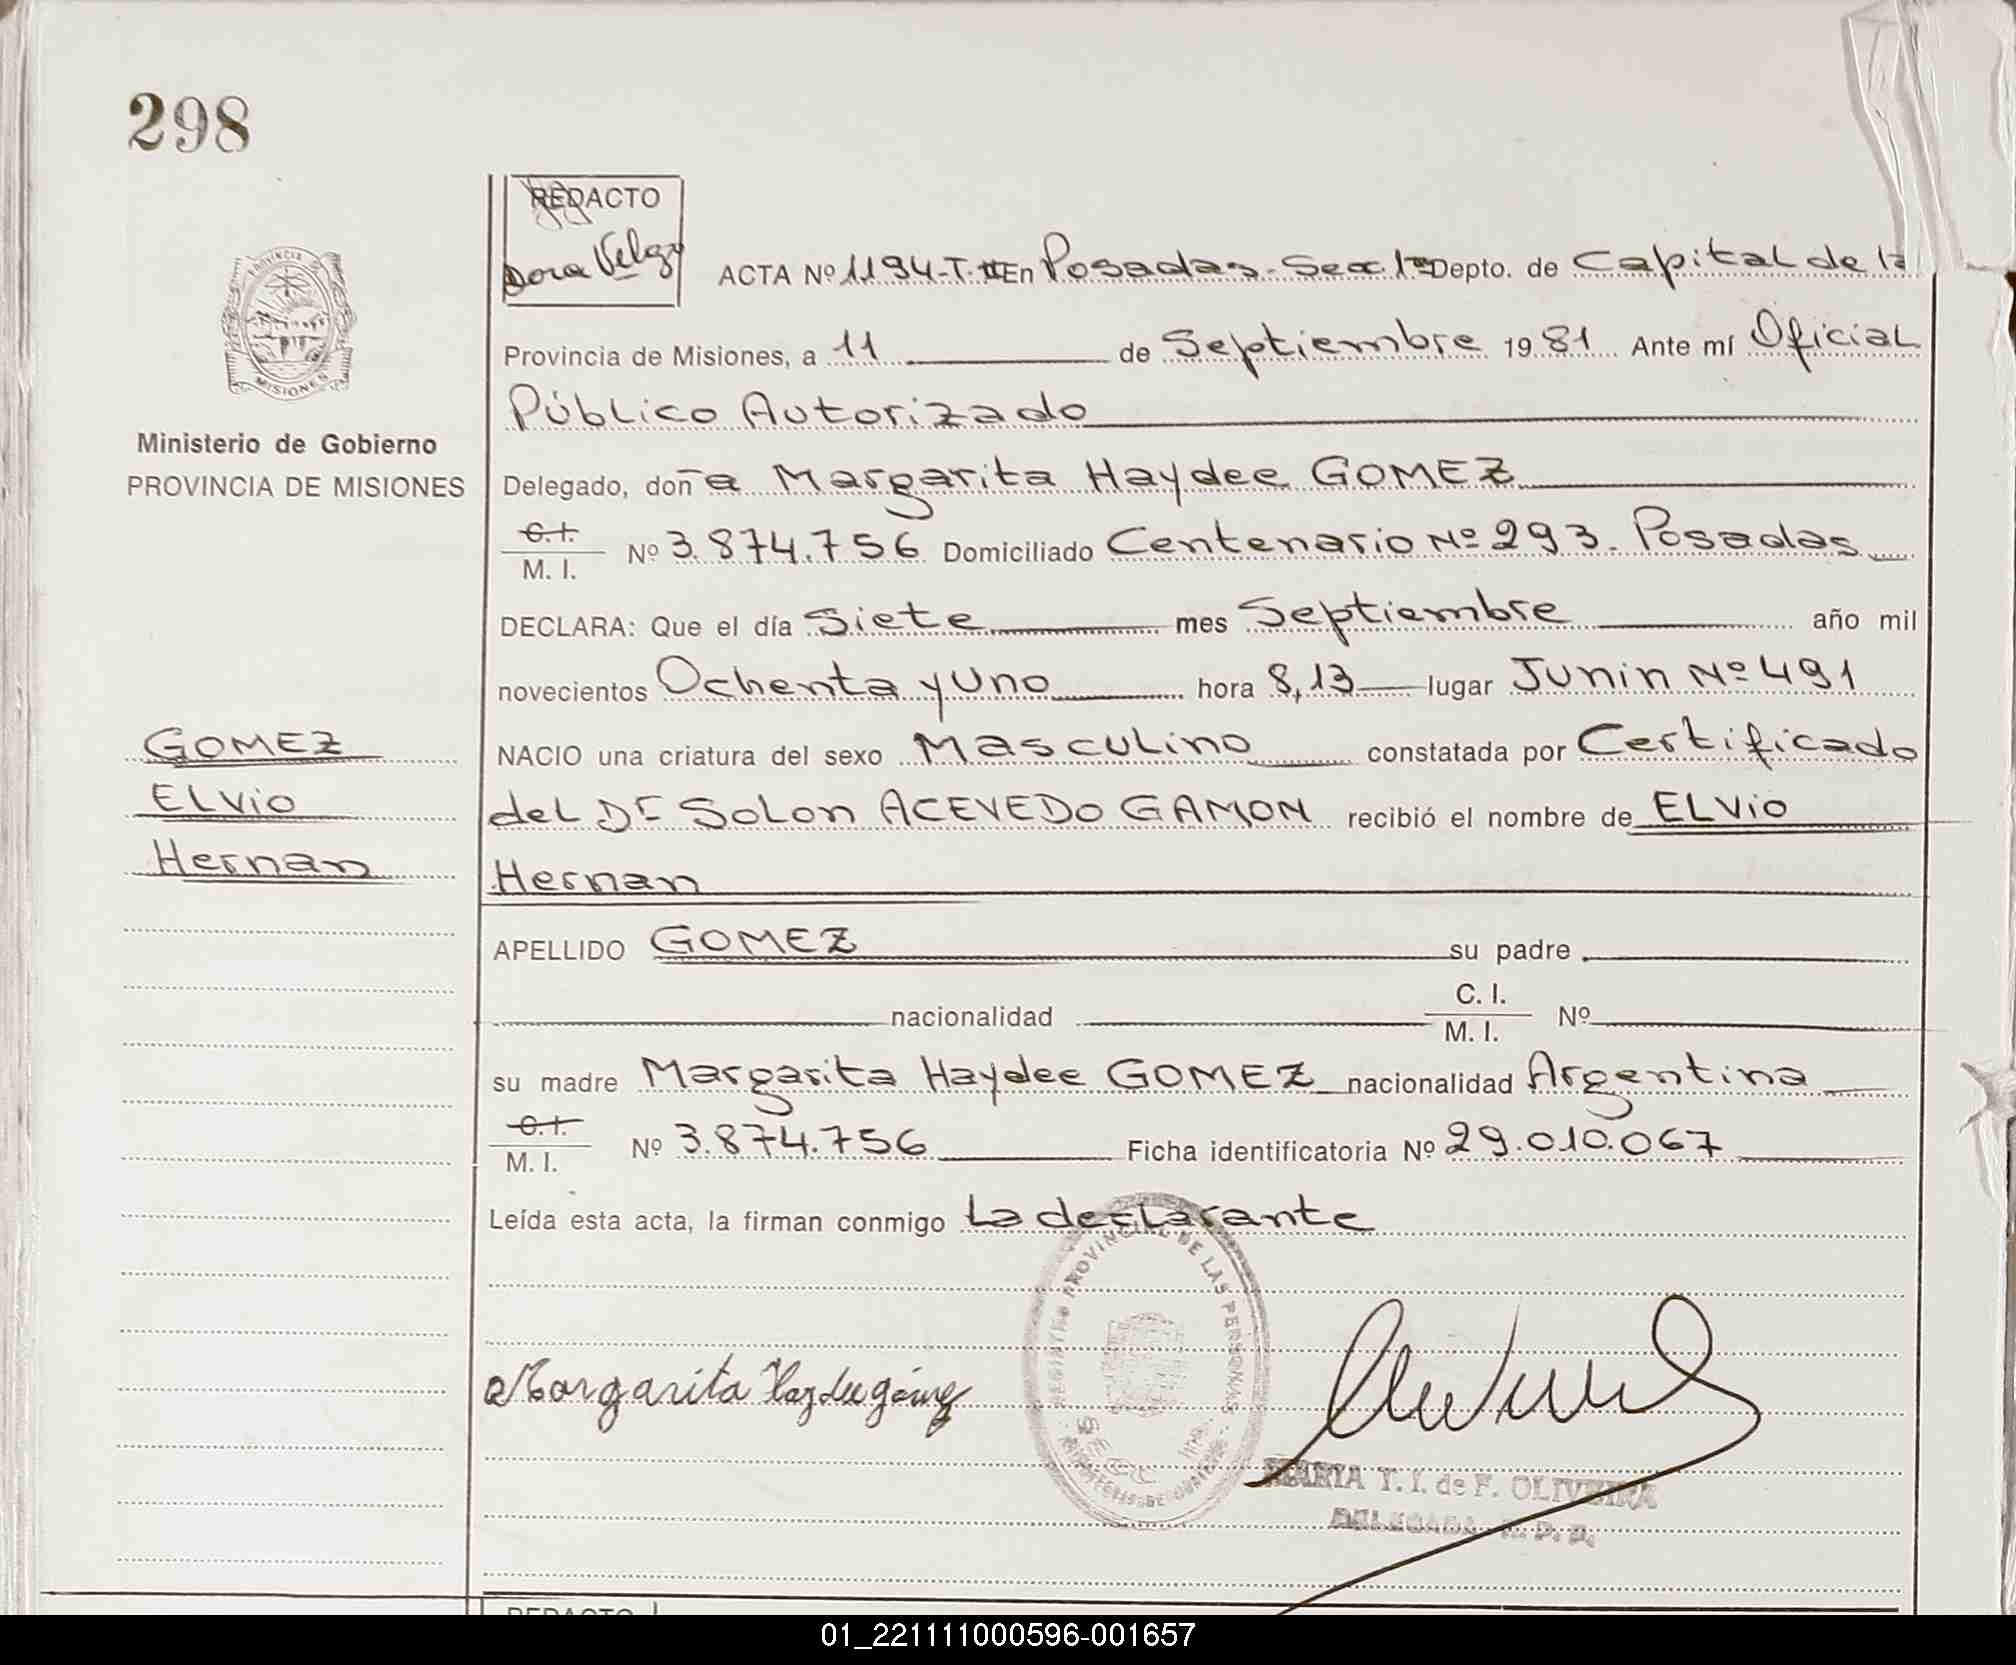 298
REDACTO
Dora Velez
ACTA Nº 1194-T. II En Posadas - Secc. 1ª Depto. de Capital de la
PROVINCIA
MISIONES
Provincia de Misiones, a 11 de Septiembre 1981 Ante mí Oficial
Público Autorizado
Ministerio de Gobierno
PROVINCIA DE MISIONES
Delegado, doña Margarita Haydee GOMEZ
C. I.
M. I. Nº 3.874.756 Domiciliado Centenario Nº 293. Posadas
DECLARA: Que el día Siete mes Septiembre año mil
novecientos Ochenta y Uno hora 8,13 lugar Junin Nº 491
GOMEZ
ELVio
Hernan
NACIO una criatura del sexo Masculino constatada por Certificado
del Dr Solon ACEVEDO GAMON recibió el nombre de ELVio
Hernan
APELLIDO GOMEZ su padre
nacionalidad C. I.
M. I. Nº
su madre Margarita Haydee GOMEZ nacionalidad Argentina
C. I.
M. I. Nº 3.874.756 Ficha identificatoria Nº 29.010.067
Leída esta acta, la firman conmigo La declarante
REGISTRO PROVINCIAL DE LAS PERSONAS
SECC 1ra
MINISTERIO DE GOBIERNO
Margarita Haydee gómez
MARIA T. I. de F. OLIVEIRA
DELEGADA R. P. P.
REDACTO
01_221111000596-001657